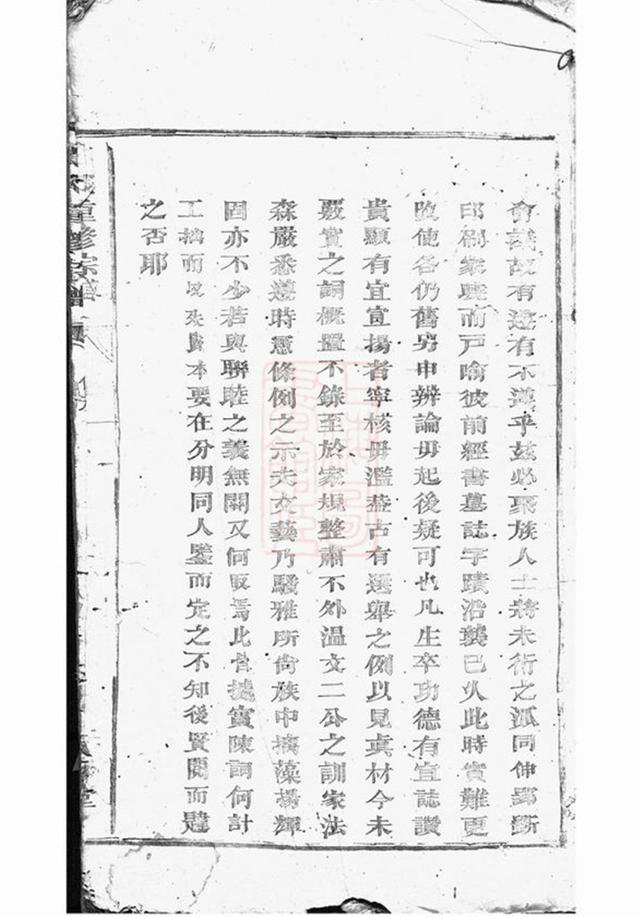 會議故有遵有不遵乎茲必聚族人士將未衍之派同伸鄙斷
印刷家驗而戶喻彼前經書墓誌字蹟沿襲已久此時實難更
改使各仍舊另申辨論毋起後疑可也凡生卒功德有宜誌讚
貴顯有宜宣揚者寧核毋濫葢古有選舉之例以見眞材今未
覈實之詞概置不錄至於家規整肅不外温文二公之訓家法
森嚴悉遵時憲條例之示夫文藝乃騷雅所尙族中摛藻揚輝
固亦不少若與聯睦之義無關又何取焉此皆據實陳詞何計
工拙而失本要在分明同人鑒而定之不知後賢閱而韙
之否耶
重修宗譜
堂